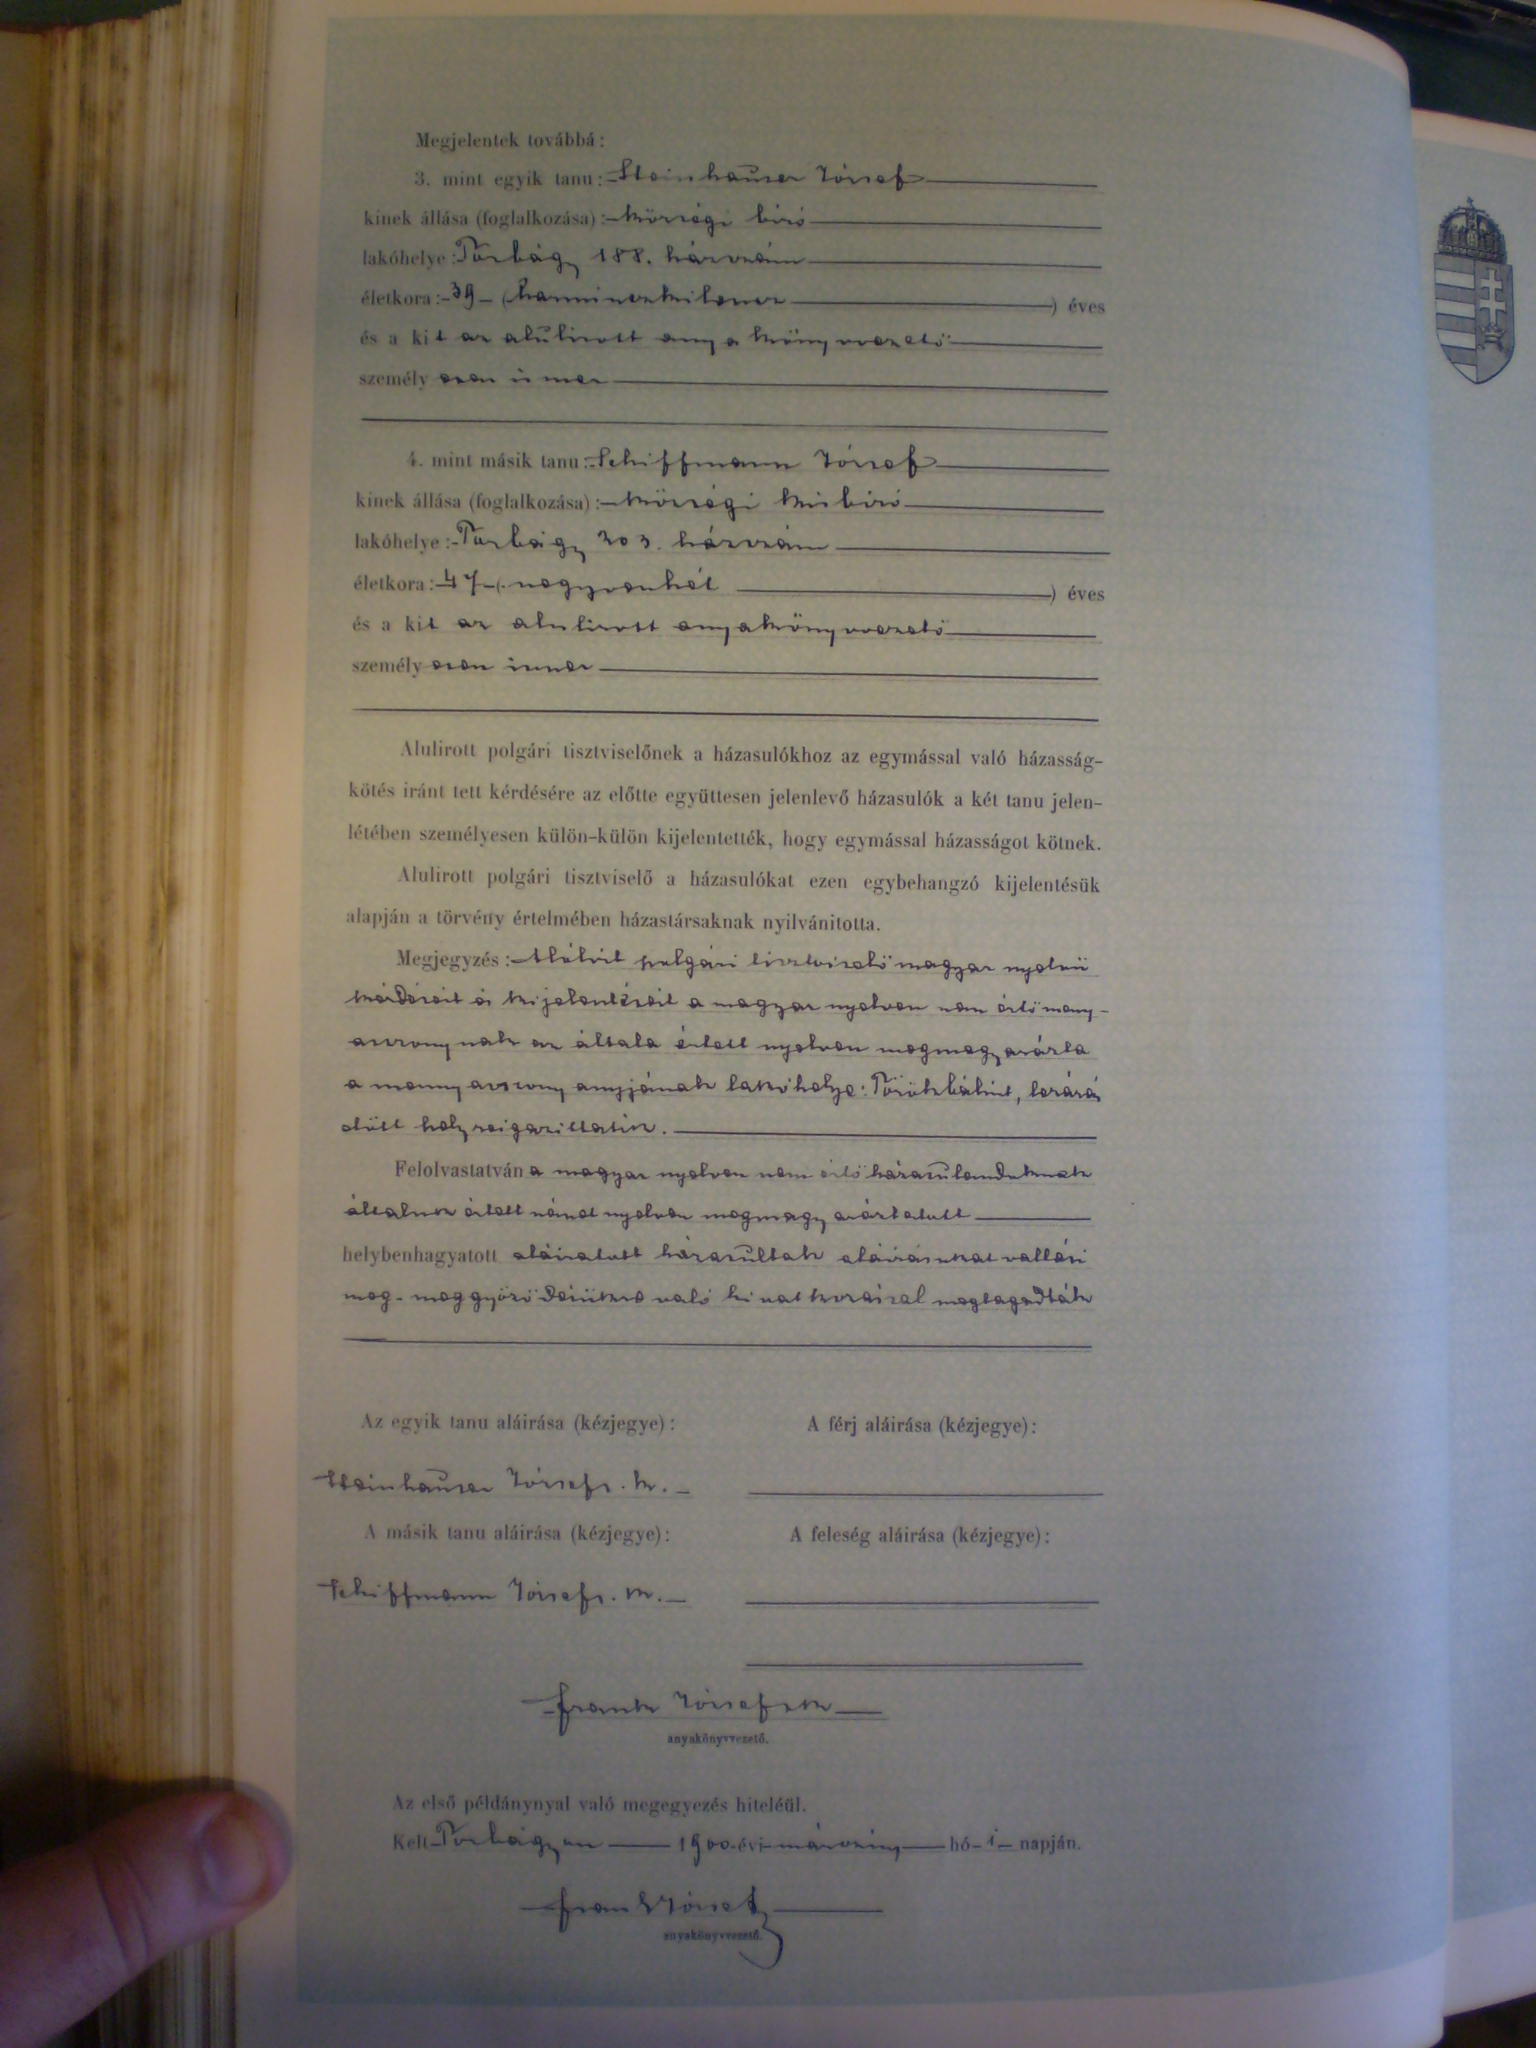 Megjelentek továbbá:
3. mint egyik tanu: Steinhauser József
kinek állása (foglalkozása): községi biró
lakóhelye: Torbágy 188. házszám
életkora: 39 (harminczkilencz) éves
és a kit az alulirott anyakönyvvezető
személyesen ismer
4. mint másik tanu: Schiffmann József
kinek állása (foglalkozása): községi kisbiró
lakóhelye: Torbágy 203. házszám
életkora: 47 (negyvenhét) éves
és a kit az alulirott anyakönyvvezető
személyesen ismer
Alulirott polgári tisztviselőnek a házasulókhoz az egymással való házasság-
kötés iránt tett kérdésére az előtte együttesen jelenlevő házasulók a két tanu jelen-
létében személyesen külön-külön kijelentették, hogy egymással házasságot kötnek.
Alulirott polgári tisztviselő a házasulókat ezen egybehangzó kijelentésük
alapján a törvény értelmében házastársaknak nyilvánitotta.
Megjegyzés: polgári tisztviselő magyar nyelvü
kérdéseit és kijelentéseit a magyar nyelven nem értő meny-
asszonynak az általa értett nyelven megmagyarázta
a mennyasszony anyjának lakóhelye: Törökbálint, lezárás
előtt helyreigazittatik.
Felolvastatván a magyar nyelven nem értő házasulandóknak
általuk értett német nyelven megmagyaráztatott
helybenhagyatott aláiratott házasultak aláirásukat vallási
meg-meggyőződésükre való hivatkozással megtagadták
Az egyik tanu aláirása (kézjegye): A férj aláirása (kézjegye):
Steinhauser József s. k.
A másik tanu aláirása (kézjegye): A feleség aláirása (kézjegye):
Schiffmann József s. k.
Frank József s k
anyakönyvvezető.
Az első példánynyal való megegyezés hiteléül.
Kelt Torbágyon 1900. évi márczius hó 1 napján.
Frank József
anyakönyvvezető.